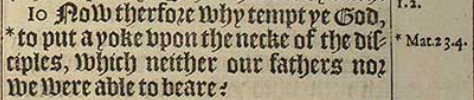 1.2.
10 Now therfore why tempt ye God,
*to put a yoke vpon the necke of the dis-
* Mat. 23.4.
ciples, which neither our fathers nor
we were able to beare?